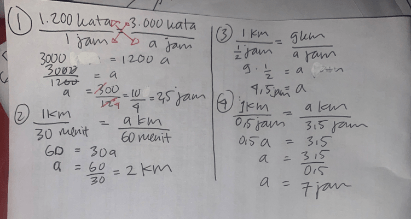 ① 1.200 kata / 1 jam = 3.000 kata / a jam
3000 = 1200 a
3000 / 1200 = a
a = 300 / 120 = 10 / 4 = 2,5 jam
② 1 km / 30 menit = a km / 60 menit
60 = 30a
a = 60 / 30 = 2 km
③ 1 km / ½ jam = 9 km / a jam
9 · ½ = a
4,5 jam = a
④ 1 km / 0,5 jam = a km / 3,5 jam
0,5 a = 3,5
a = 3,5 / 0,5
a = 7 jam